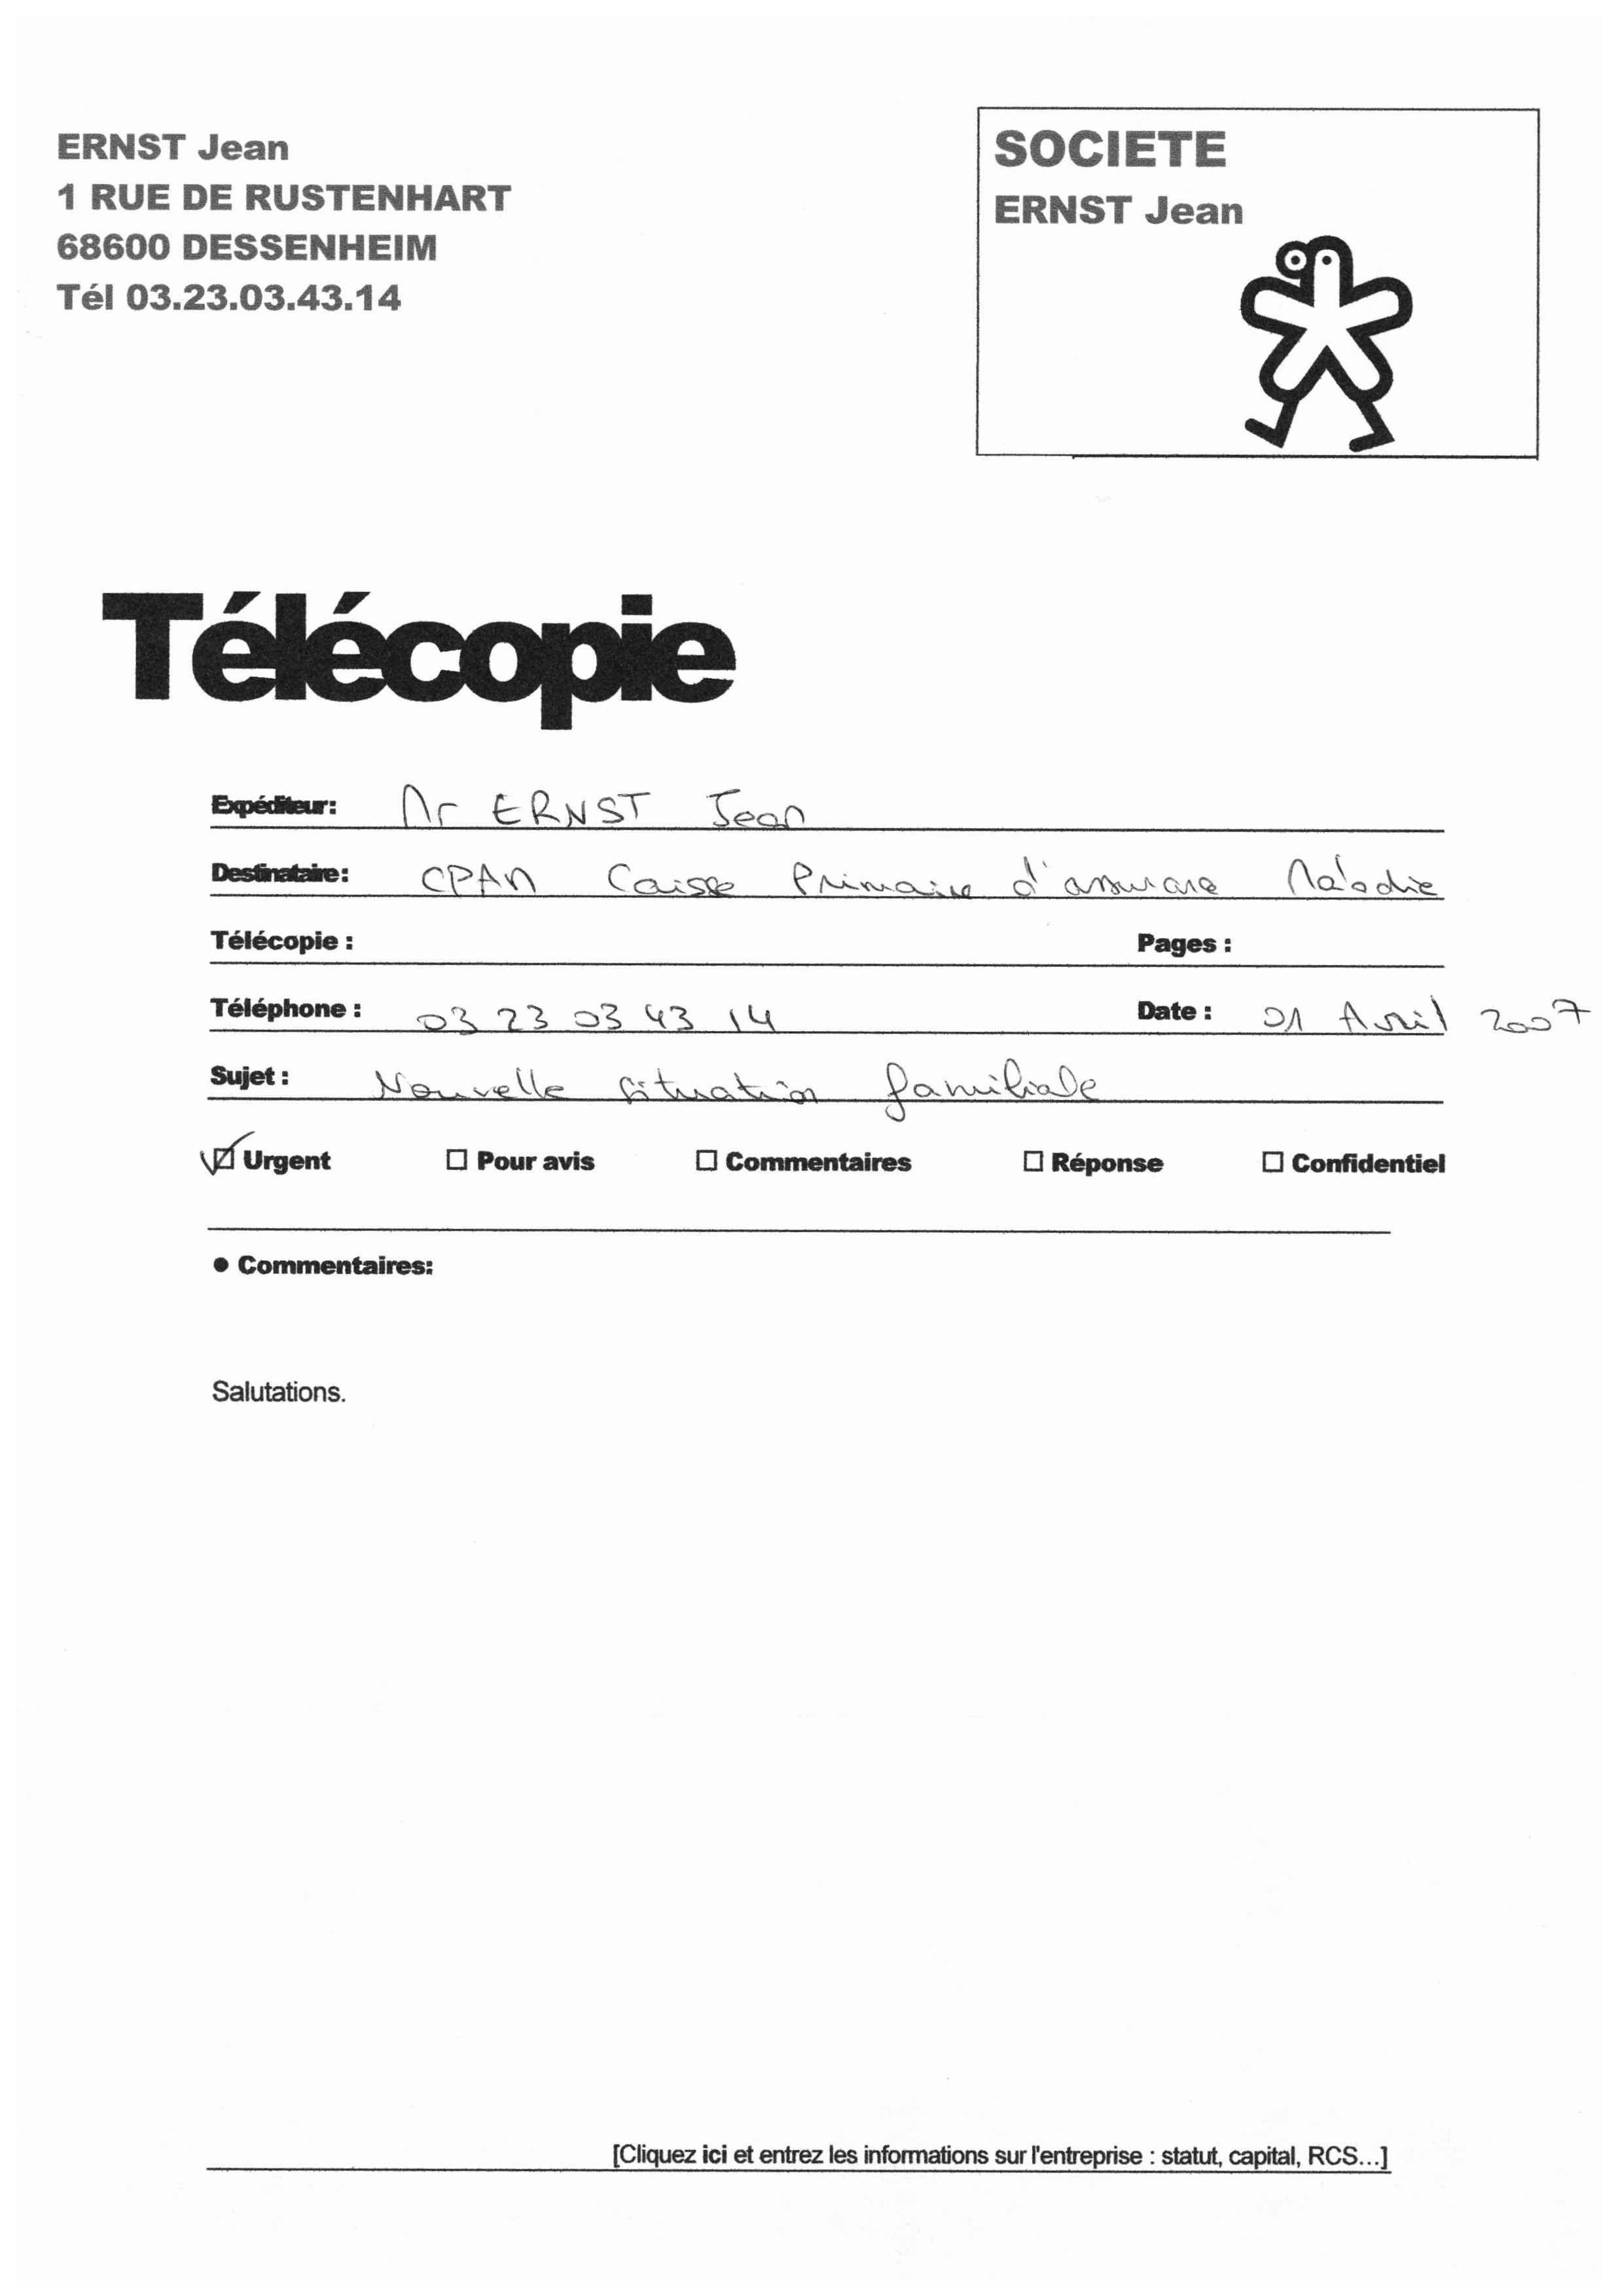 ERNST Jean
1 RUE DE RUSTENHART
68600 DESSENHEIM
Tél 03.23.03.43.14
SOCIETE
ERNST Jean
Télécopie
Expéditeur: Mr ERNST Jean
Destinataire: CPAM Caisse Primaire d'assurance Maladie
Télécopie : Pages :
Téléphone : 03 23 03 43 14 Date : 01 Avril 2007
Sujet : Nouvelle situation familiale
☑ Urgent ☐ Pour avis ☐ Commentaires ☐ Réponse ☐ Confidentiel
● Commentaires:
Salutations.
[Cliquez ici et entrez les informations sur l'entreprise : statut, capital, RCS...]